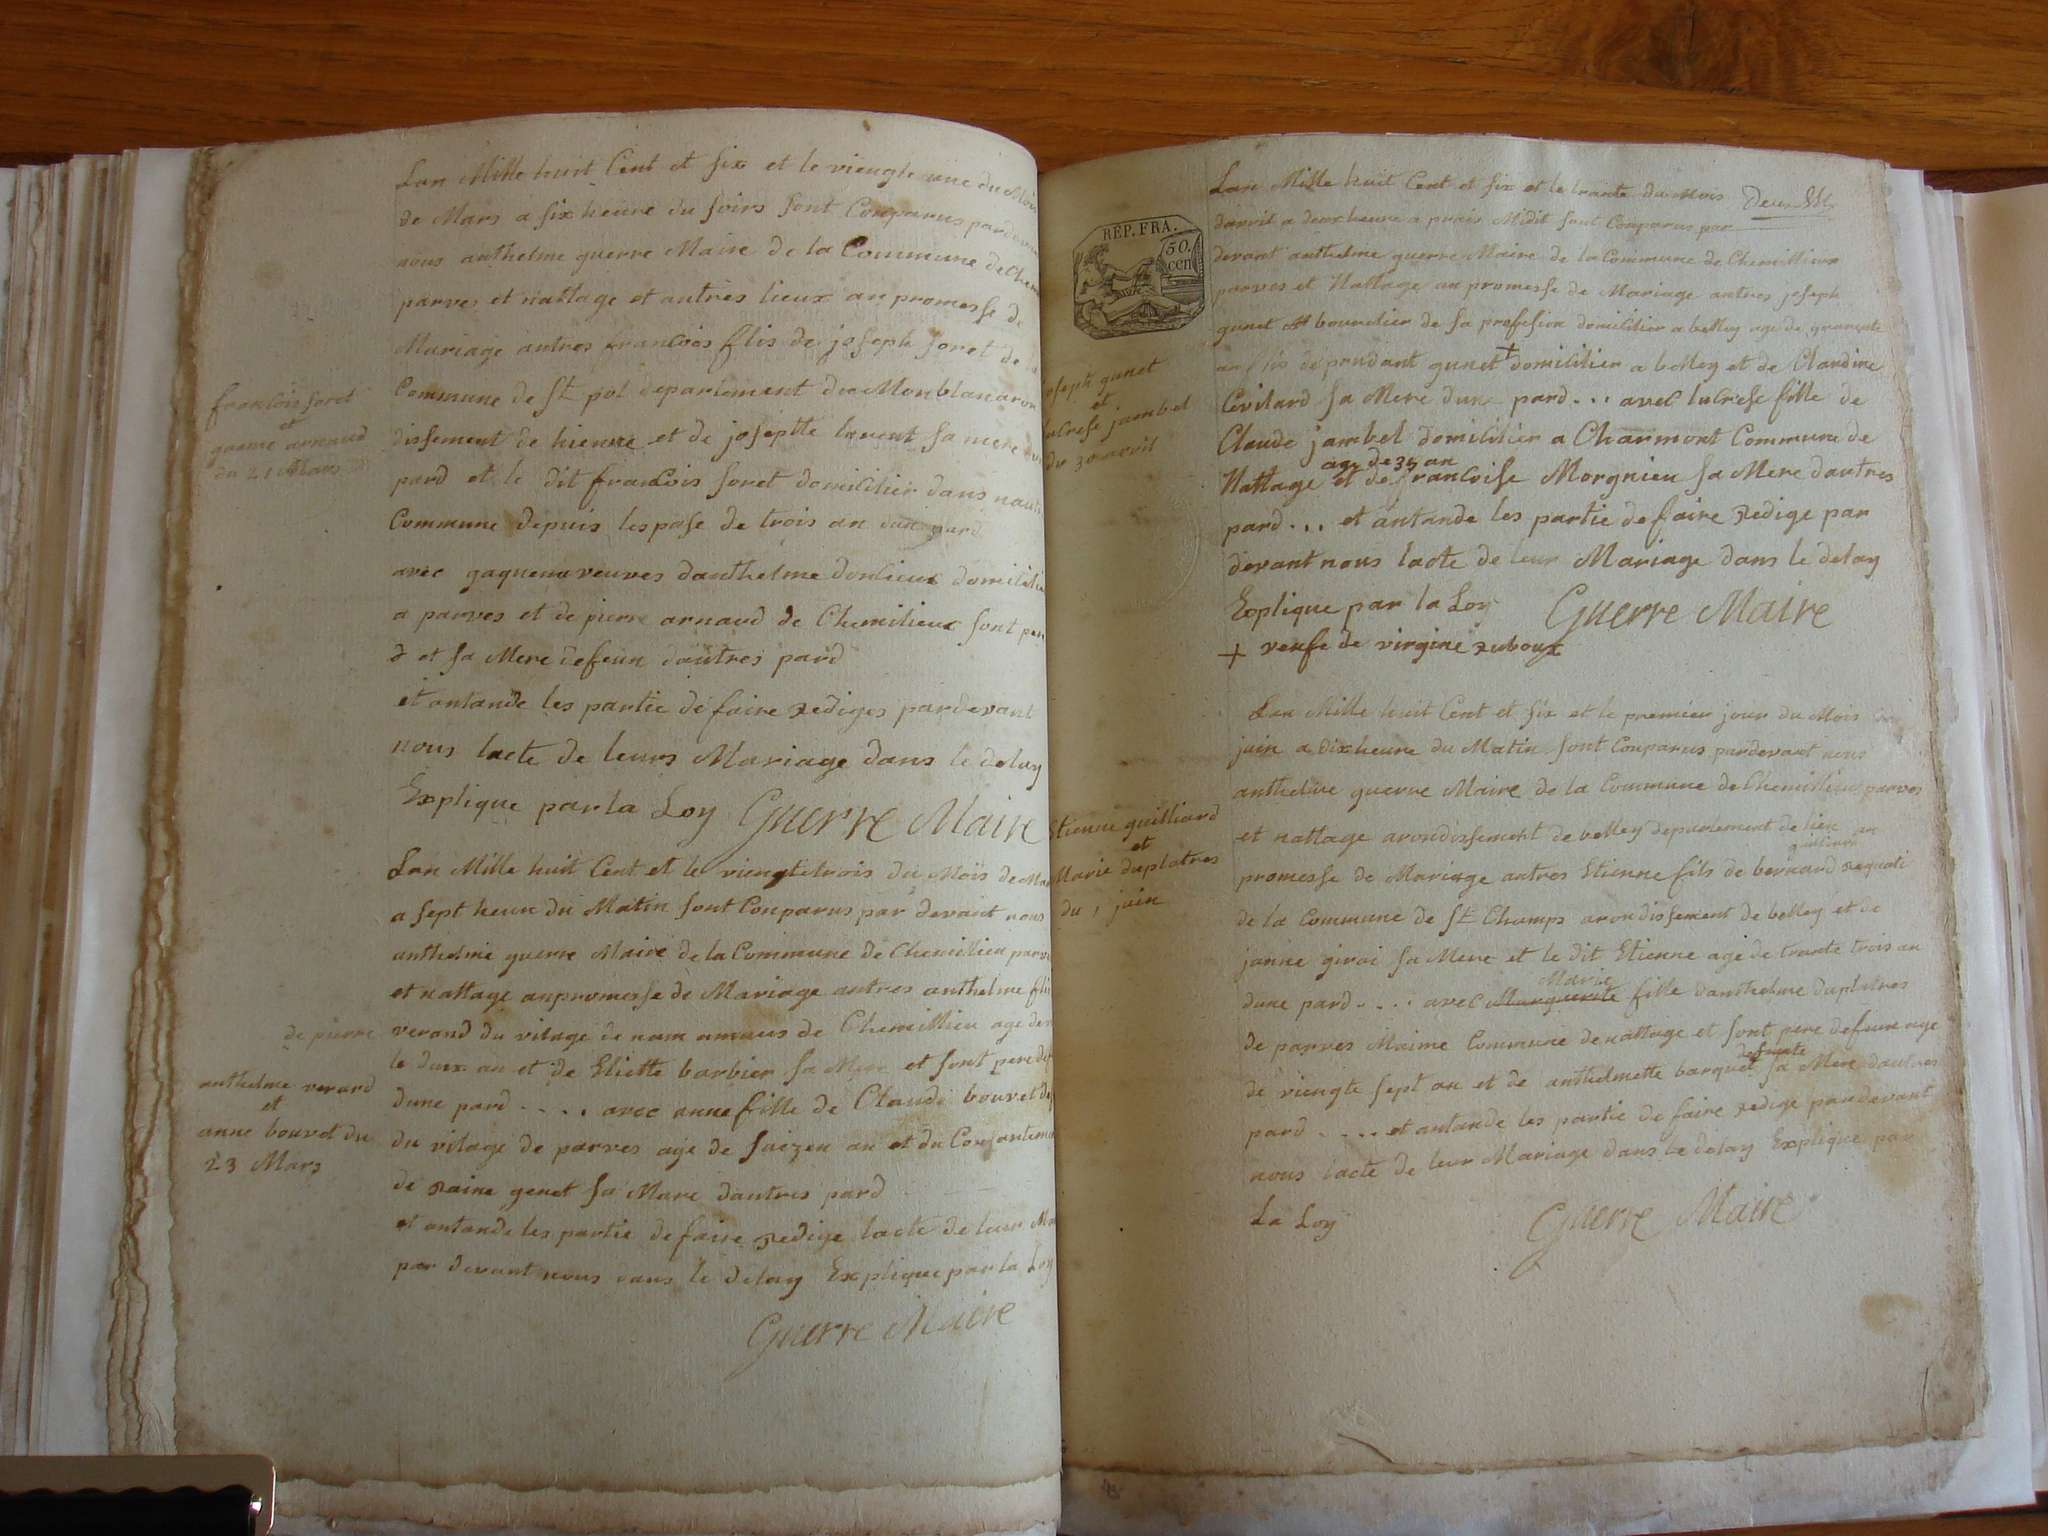 Lan Mille huit Cent et six et le viengte une du Mois
de Mars a six heure du soirs sont Conparus pardevan
nous anthelme guerre Maire de la Commune de Chem
parves et nattage et autres lieux an promesse de
Mariage autres francois flis de joseph foret de la
Commune de St pol departement du Monblan aron
dissement de hienne et de josephte lavent sa mere
pard et le dit francois foret domicilier dans nautr
Commune depuis lespase de trois an dun pard
avec gaquema veuves danthelme donlieux domicilie
a parves et de pierre arnaud de Chemilieux sont per
d et sa Mere defeun dautres pard
et antande les partie de faire rediges pardevant
nous lacte de leurs Mariage dans le delay
Explique par la Loy Guerre Maire
francois foret
et
gaeme arnaud
du 21 Mars
Lan Mille huit Cent et le viengtetrois du Mois de Ma
a sept heure du Matin sont Conparus par devant nous
anthelme guerre Maire de la Commune de Chemilieu parve
et nattage anpromesse de Mariage autres anthelme flis
de pierre
verand du vilage de nam de Chemillieu age de
le deux an et de Eliette barbier sa Mere et sont pere def
dune pard .... avec anne fille de Claude bouvet de
du vilage de parves age de saizen an et du Consanteme
de raine genet sa Mare dautres pard
et antande les partie de faire redige lacte de leur Ma
par devant nous dans le delay Explique par la Loy
Guerre Maire
anthelme verard
et
anne bouvet du
23 Mars
REP. FRA.
50.
cen
Lan Mille huit Cent et six et le trante du Mois
davril a deux heure a prais Midit sont Conparus par
devant anthelme guerre Maire de la Commune de Chemillieux
parves et Nattage an promesse de Mariage autres joseph
gunet bourelier de sa profesion domicilier a belley age de
an fis de prudant gunet + domicilier a belley et de Claudine
Cevilard sa Mere dune pard ... avec lucrese fille de
Claude jambel domicilier a Charmont Commune de
age de 35 an
Nattage et de francoise Morgnieu sa Mere dautres
pard ... et antande les partie de faire redige par
devant nous lacte de leur Mariage dans le delay
Explique par la Loy Guerre Maire
+ veufe de virgine ruboux
joseph gunet
et
lucrese jambel
du 30 avril
Lan Mille huit Cent et six et le premier jour du Mois
juin a dix heure du Matin sont Conparus pardevant nous
anthelme guerre Maire de la Commune de Chemillieu parves
et nattage arondissement de belley departement de lien an
promesse de Mariage autres Etienne fils de bernard
de la Commune de St Champs arondissement de belley et de
janne giroi sa Mere et le dit Etienne age de trante trois an
Marie
dune pard .... avec Marguerite fille danthelme duplatres
de parves Maime Commune de nattage et sont pere defeun age
defunte
de viengte sept an et de anthelmette barquet sa Mere dautres
pard .... et antande les partie de faire redige pardevant
nous lacte de leur Mariage dans le delay Explique par
La Loy Guerre Maire
Etienne guilliard
et
Marie duplatres
du 1 juin